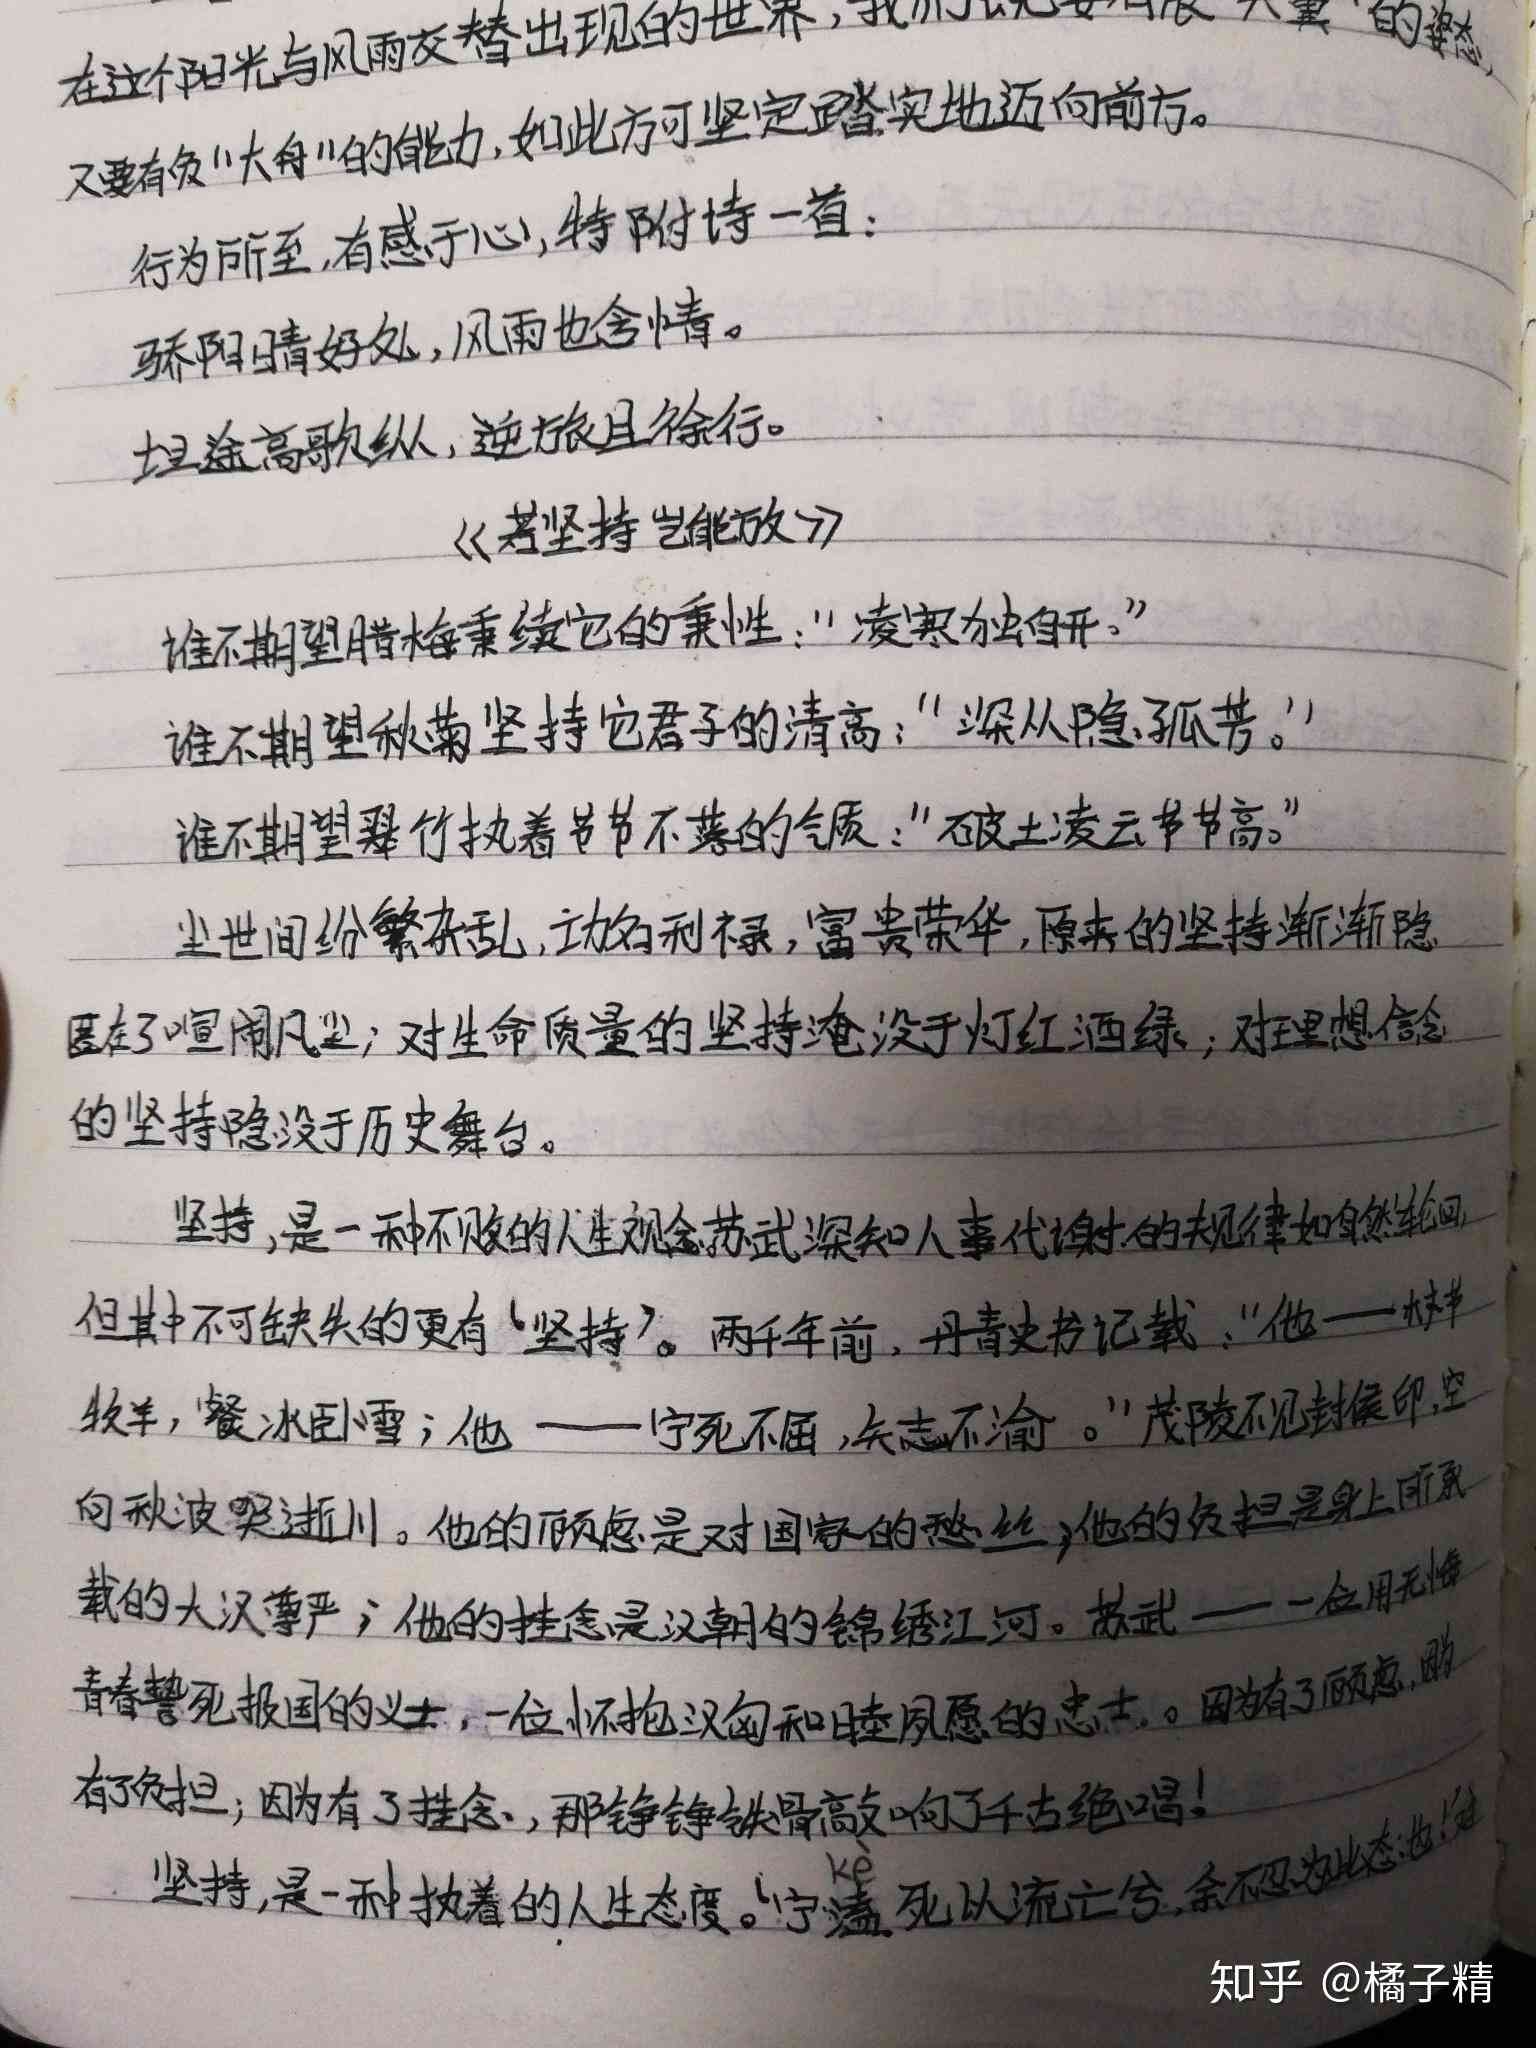 在这个阳光与风雨交替出现的世界，我们既要有展“大翼”的姿态，
又要有负“大舟”的能力，如此方可坚定踏实地迈向前方。
行为所至，有感于心，特附诗一首：
骄阳晴好处，风雨也含情。
坦途高歌纵，逆旅且徐行。
《若坚持岂能放》
谁不期望腊梅秉续它的秉性：“凌寒独自开。”
谁不期望秋菊坚持它君子的清高：“深丛隐孤芳。”
谁不期望翠竹执着节节不落的气质：“破土凌云节节高。”
尘世间纷繁杂乱，功名利禄，富贵荣华，原来的坚持渐渐隐
匿在了喧闹风尘；对生命质量的坚持淹没于灯红酒绿；对理想信念
的坚持隐没于历史舞台。
坚持，是一种不败的人生观念。苏武深知人事代谢的规律如自然轮回，
但其中不可缺失的更有‘坚持’。两千年前，丹青史书记载：“他——持节
牧羊，餐冰卧雪；他——宁死不屈，矢志不渝。”茂陵不见封侯印，空
向秋波哭逝川。他的顾虑是对国家的愁丝；他的负担是身上所承
载的大汉尊严；他的挂念是汉朝的锦绣江河。苏武——一位用无悔
青春誓死报国的义士，一位怀抱汉匈和睦夙愿的忠士。因为有了顾虑，因为
有了负担；因为有了挂念，那铮铮铁骨高敲响了千古绝唱！
kè
坚持，是一种执着的人生态度。‘宁溘死以流亡兮，余不忍为此态也！’
知乎 @橘子精